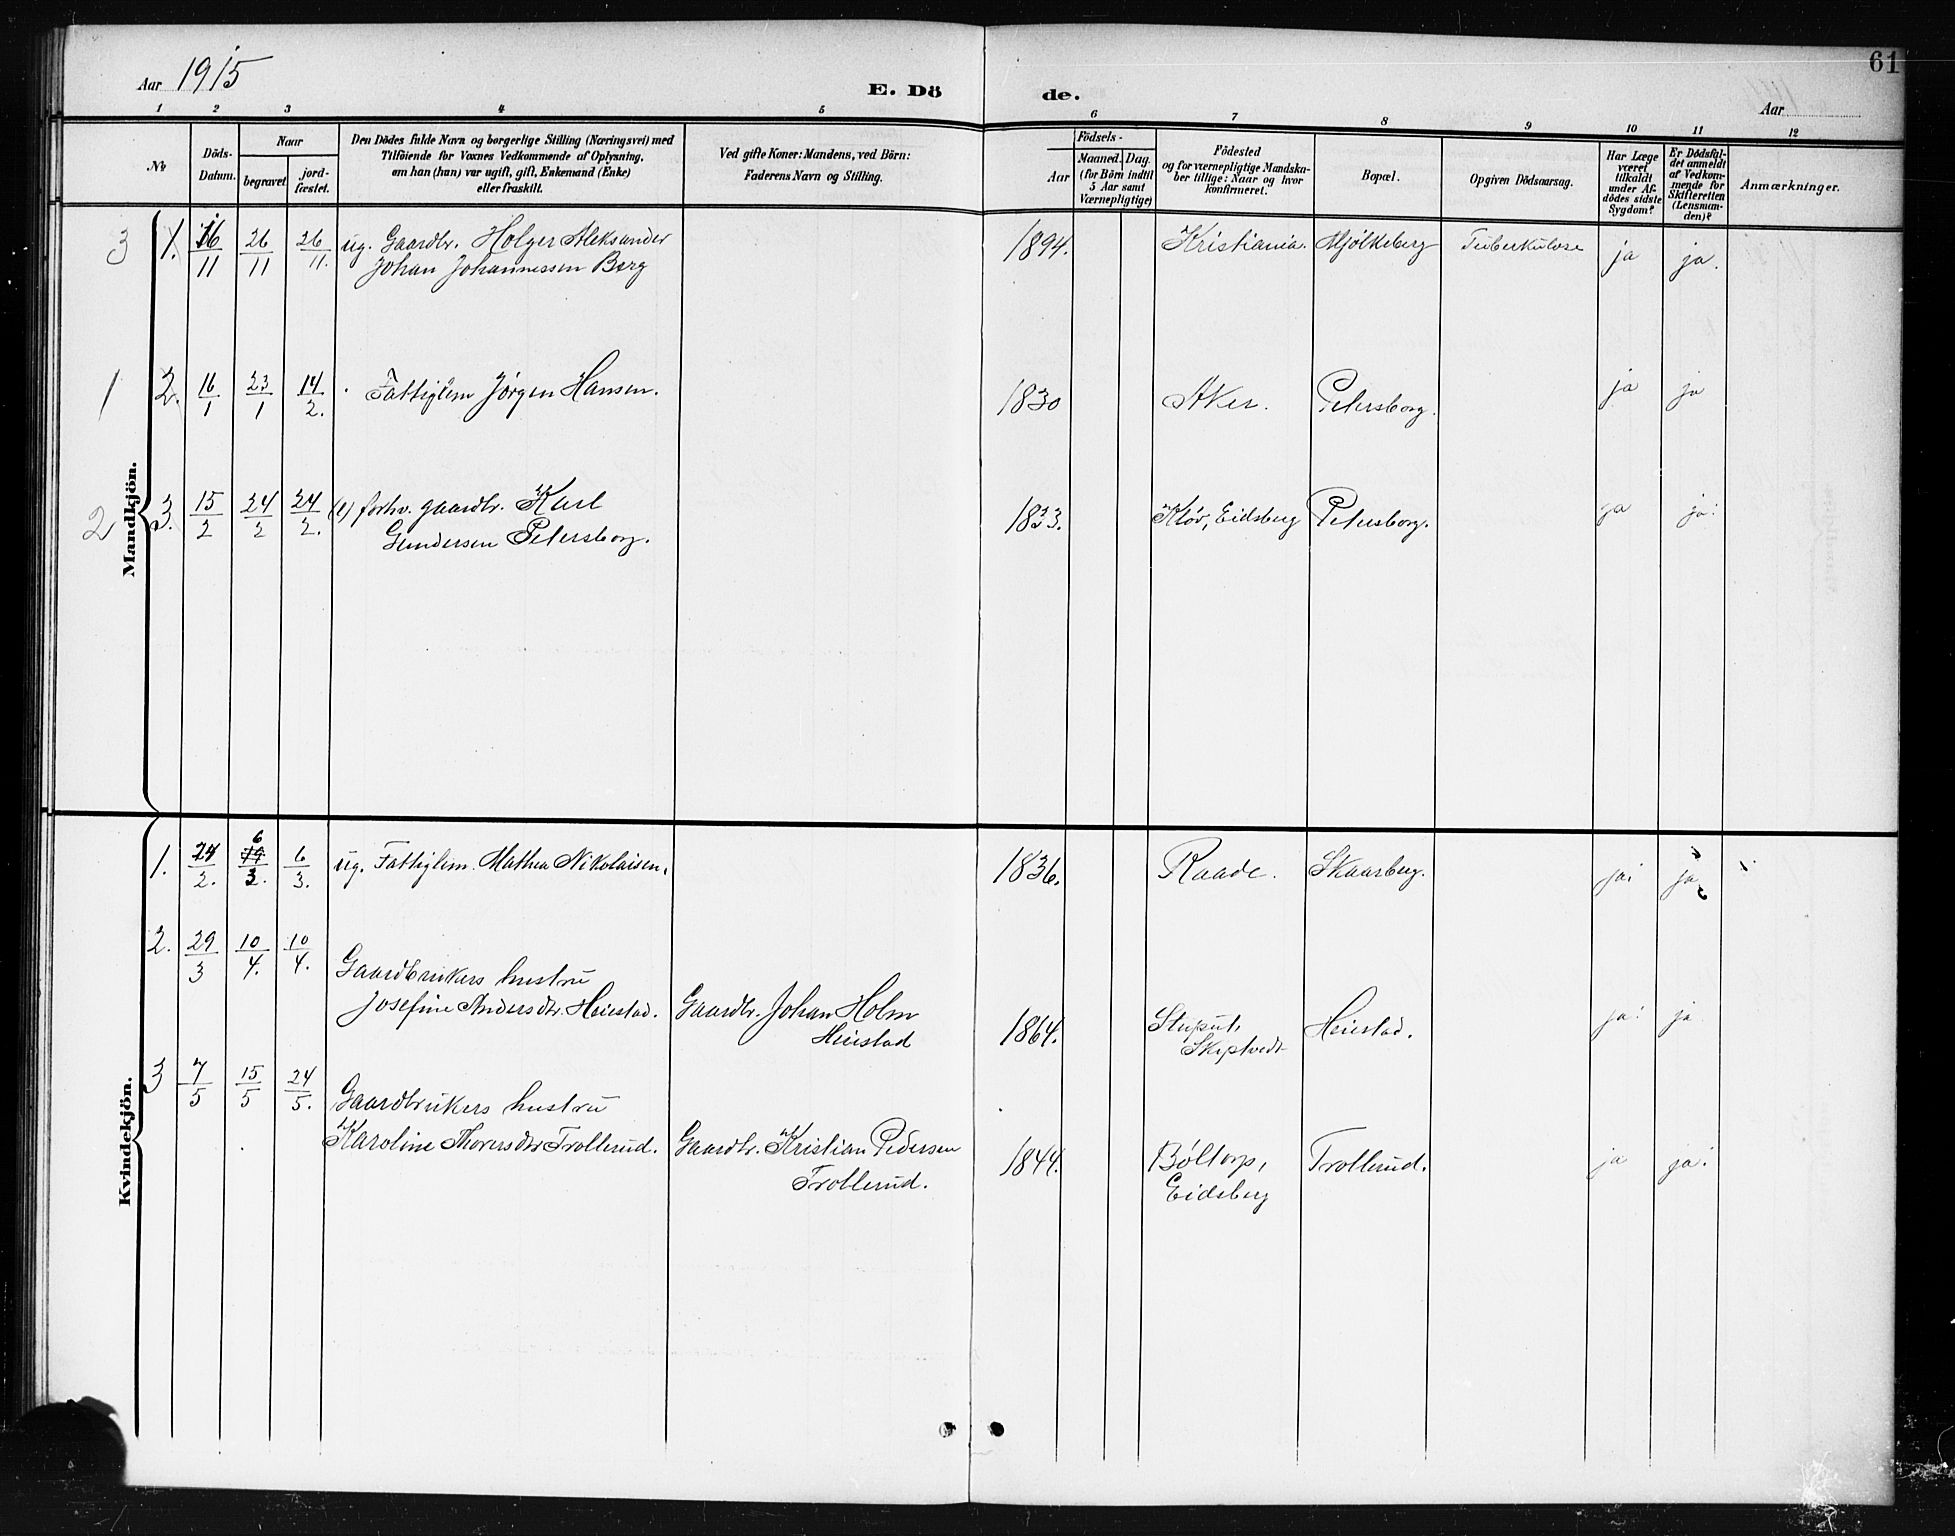 61
Aar 1915
E. Dö de.
Aar
1 2 3 4 5 6 7 8 9 10 11 12
Nr
Döds-
Datum.
Naar
begravet
jord-
fæstet.
Den Dödes fulde Navn og borgerlige Stilling (Næringsvei) med
Tilföiende for Voxnes Vedkommende af Oplysning,
om han (hun) var ugift, gift, Enkemand (Enke)
eller fraskilt.
Ved gifte Koner: Mandens, ved Börn:
Faderens Navn og Stilling.
Födsels-
Aar
Maaned. Dag.
(for Börn indtil
5 Aar samt
Værnepligtige)
Födested
og for værnepligtige Mandska-
ber tillige: Naar og hvor
konfirmeret.
Bopæl.
Opgiven Dödsaarsag.
Har Læge
været
tilkaldt
under Af-
dödes sidste
Sygdom?
Er Dödsfal-
det anmeldt
af Vedkom-
mende for
Skifteretten
(Lensman-
den)?
Anmærkninger.
Mandkjön.
3 1. 16/11 26/11 26/11. ug. Gaardbr. Holger Aleksander 1894. Kristiania. Mjölkeberg Tuberkulose ja ja.
Johan Johannessen Berg
1 2. 16/1 23/1 14/2. Fattiglem Jørgen Hansen. 1830 Aker. Petersborg. ja ja
2 3. 15/2 24/2 24/2. (e) forhv. gaardbr. Karl 1833. Kløv, Eidsberg Petersborg. ja ja.
Gundersen Petersborg.
Kvindekjön.
1. 24/2. 6/3. 6/3. ug. Fattiglem. Mathea Nikolaisen. 1836. Raade. Skaarberg. ja. ja
2. 29/3 10/4. 10/4.
Gaardbrukers hustru
Josefine Andersdtr. Heiestad. Gaardbr. Johan Holm 1864. Heiestad. ja. ja
Heiestad Skiptvedt
3 7/5 15/5 24/5. Gaardbrukers hustru
Karoline Thorersdtr Trollerud. Gaardbr. Kristian Pedersen 1844. Bøltorp, Trollerud. ja ja.
Trollerud. Eidsberg